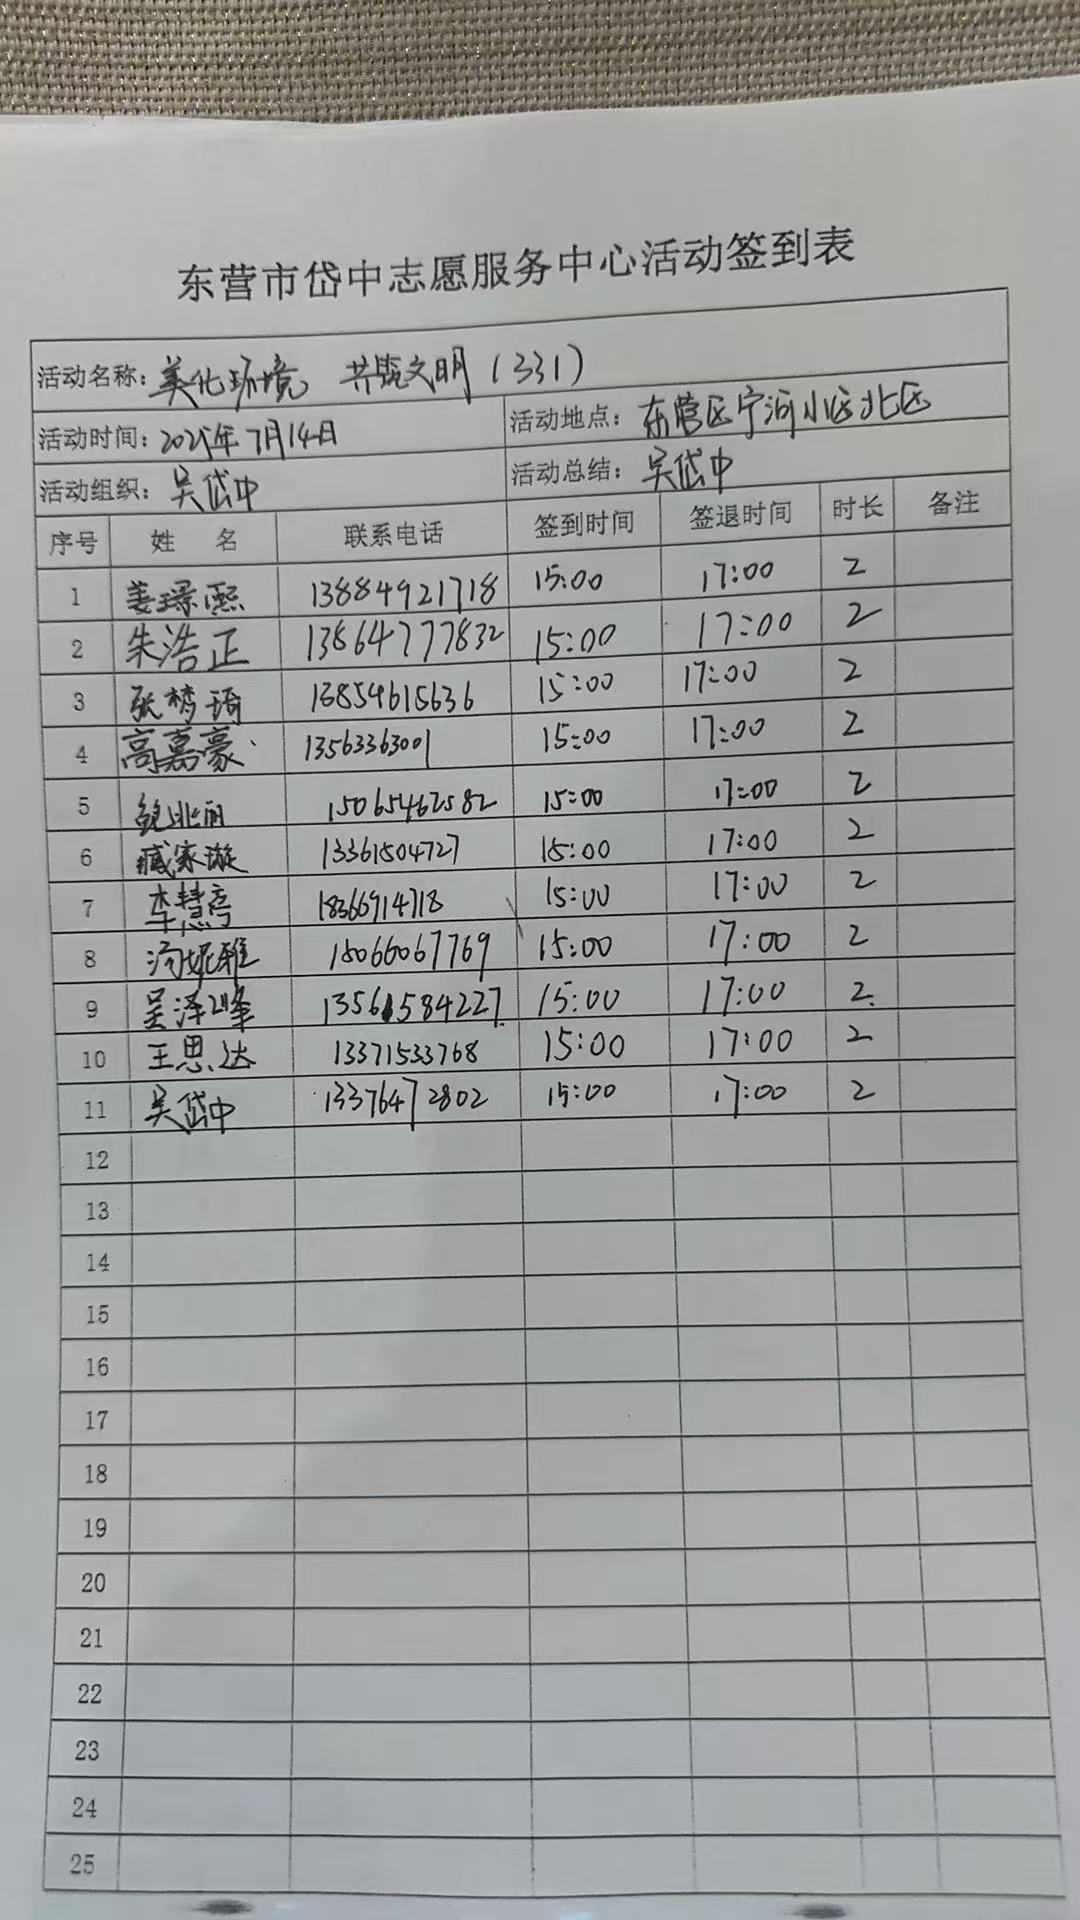 东营市岱中志愿服务中心活动签到表
活动名称：美化环境 共筑文明（331）
活动时间：2025年7月14日 活动地点：东营区宁河小区北区
活动组织：吴岱中 活动总结：吴岱中
序号 姓 名 联系电话 签到时间 签退时间 时长 备注
1 姜璟熙 13884921718 15:00 17:00 2
2 朱浩正 13864777832 15:00 17:00 2
3 张梦琦 13854615636 15:00 17:00 2
4 高嘉豪 13563363001 15:00 17:00 2
5 15065462582 15:00 17:00 2
6 臧家璇 13361504727 15:00 17:00 2
7 李慧亭 18366914718 15:00 17:00 2
8 汤妮雅 15066067769 15:00 17:00 2
9 吴泽峰 13561584227 15:00 17:00 2
10 王思达 13371533768 15:00 17:00 2
11 吴岱中 13376472802 15:00 17:00 2
12
13
14
15
16
17
18
19
20
21
22
23
24
25